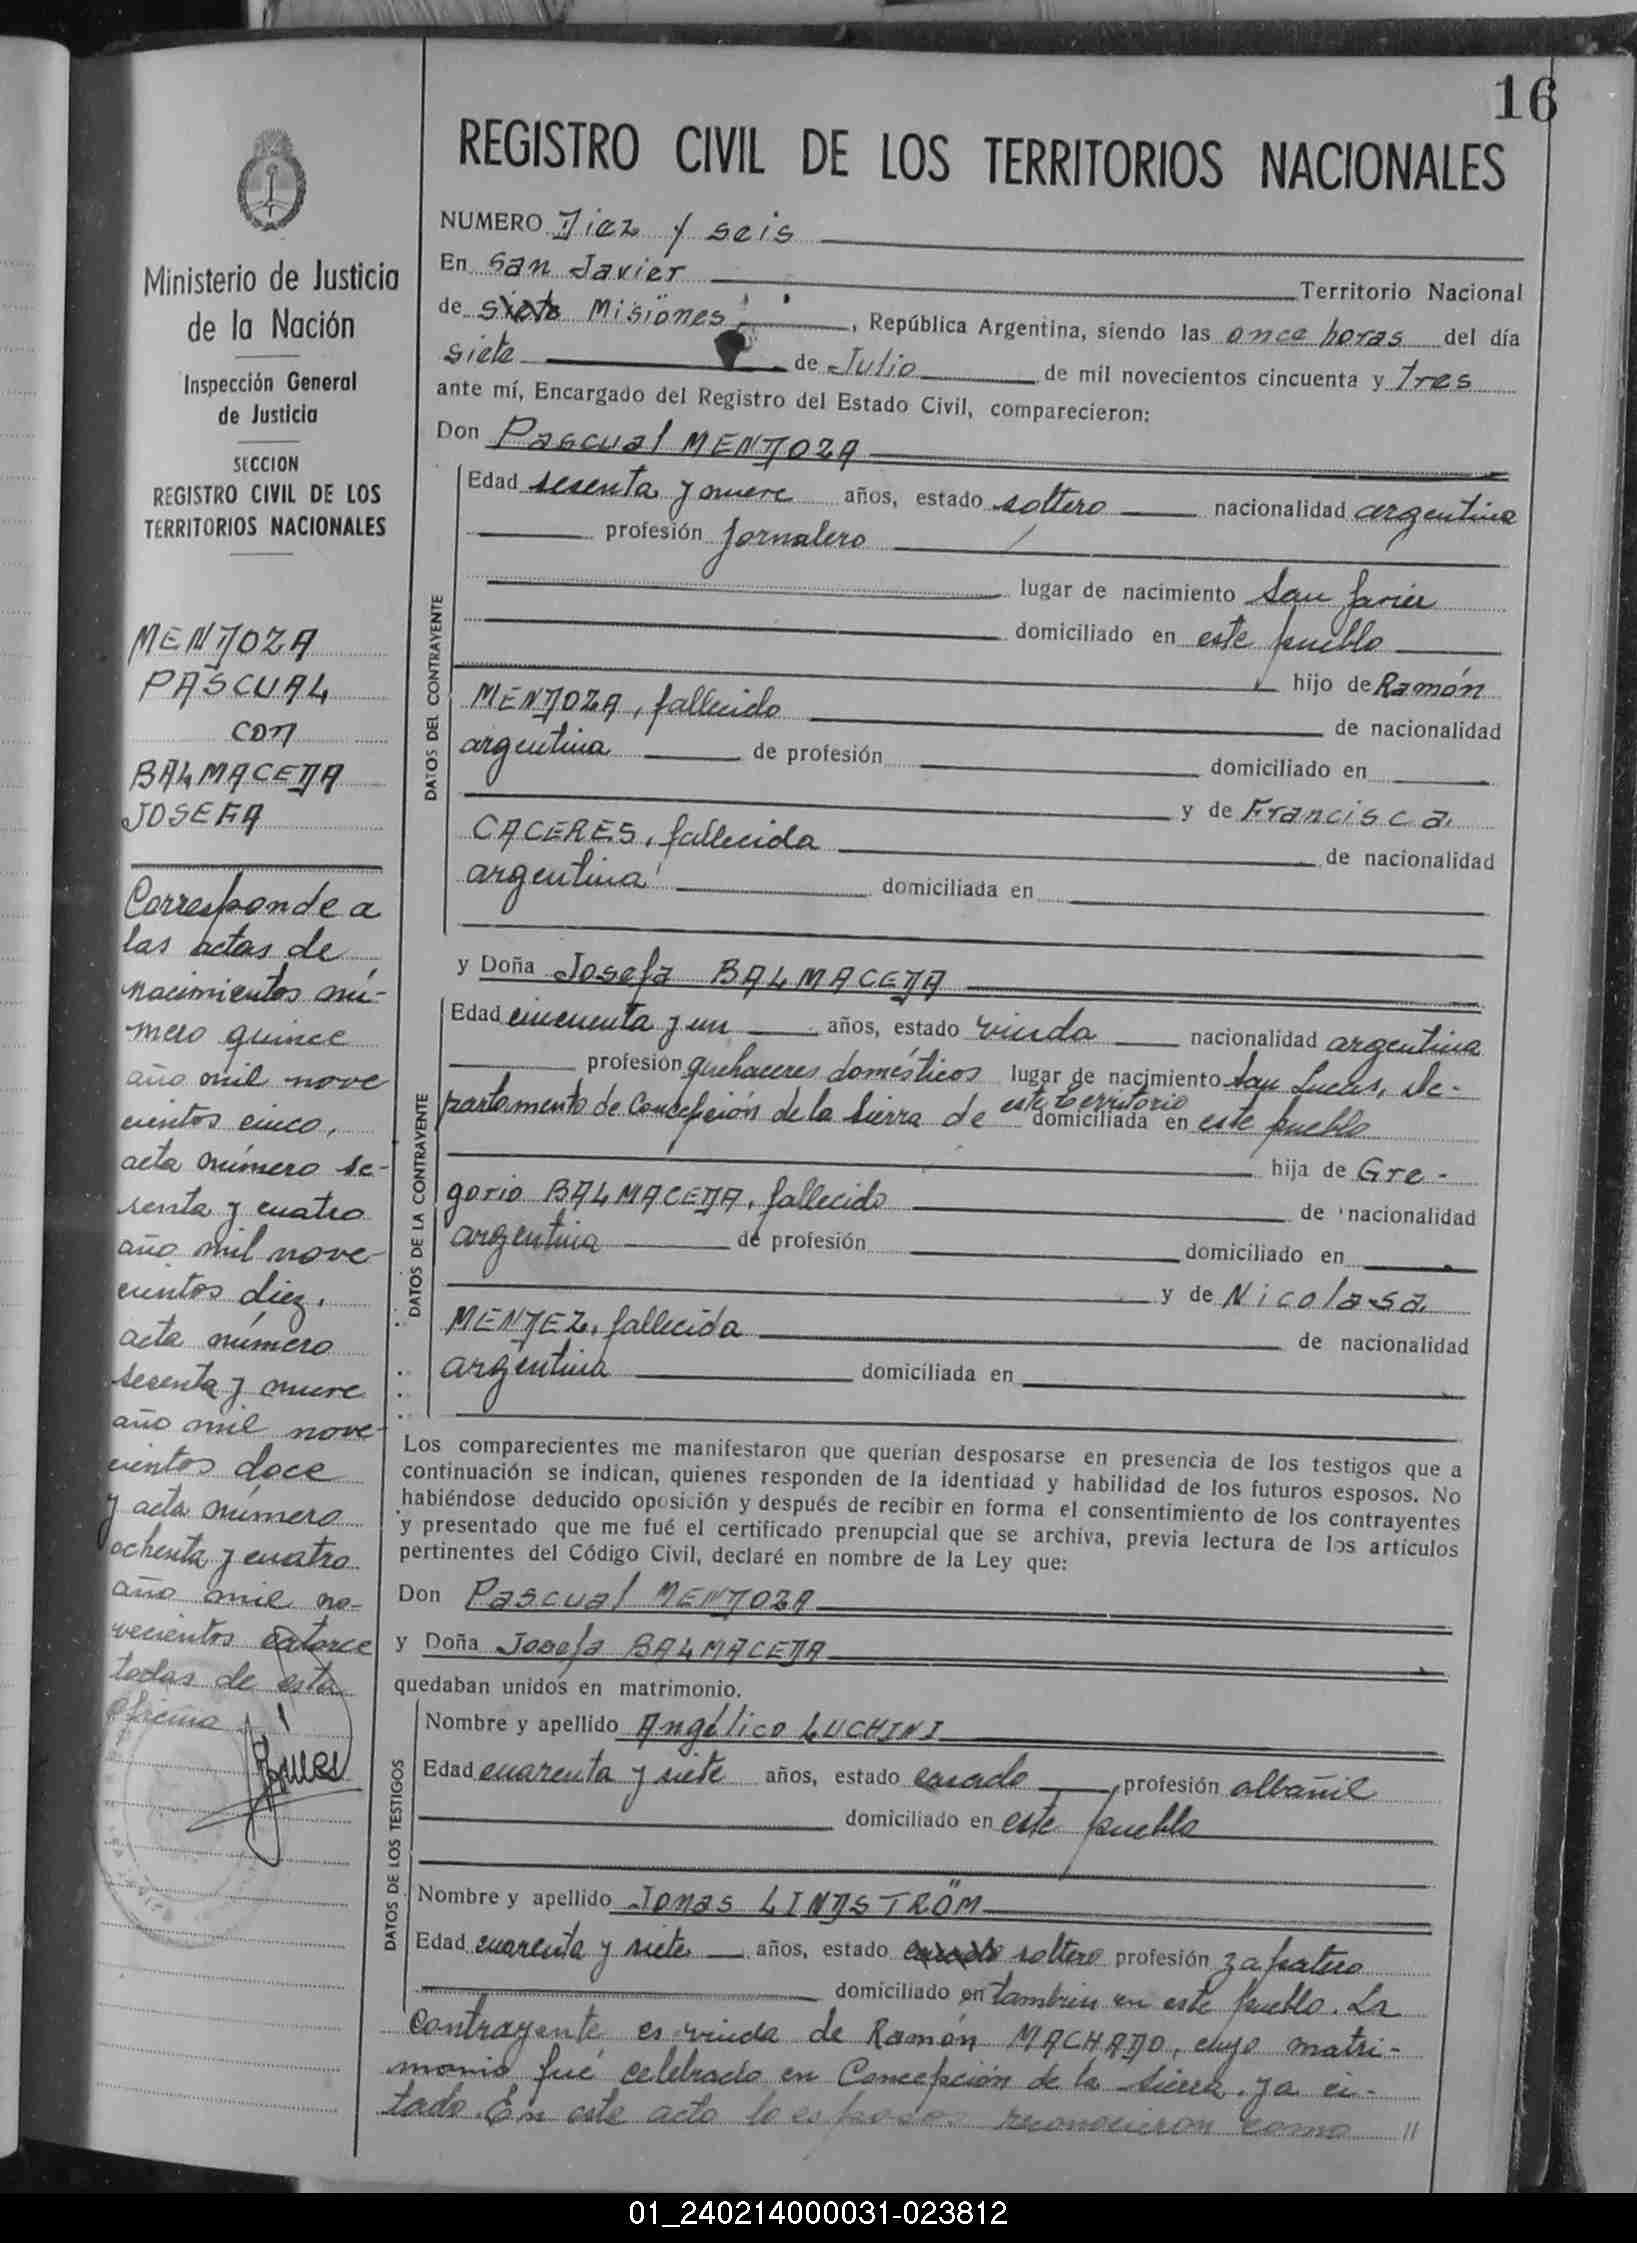 16
REGISTRO CIVIL DE LOS TERRITORIOS NACIONALES
Ministerio de Justicia
de la Nación
Inspección General
de Justicia
SECCION
REGISTRO CIVIL DE LOS
TERRITORIOS NACIONALES
MENDOZA
PASCUAL
con
BALMACEDA
JOSEFA
Corresponde a
las actas de
nacimientos nú-
mero quince
año mil nove
cientos cinco,
acta número se-
senta y cuatro
año mil nove-
cientos diez,
acta número
sesenta y nueve
año mil nove-
cientos doce
y acta número
ochenta y cuatro
año mil no-
vecientos catorce
todas de esta
oficina
NUMERO Diez y seis
En San Javier Territorio Nacional
de siete Misiones, República Argentina, siendo las once horas del día
siete de Julio de mil novecientos cincuenta y tres
ante mí, Encargado del Registro del Estado Civil, comparecieron:
Don Pascual MENDOZA
DATOS DEL CONTRAYENTE
Edad sesenta y nueve años, estado soltero nacionalidad argentina
profesión jornalero
lugar de nacimiento San Javier
domiciliado en este pueblo
hijo de Ramón
MENDOZA, fallecido de nacionalidad
argentina de profesión domiciliado en
y de Francisca
CACERES, fallecida de nacionalidad
argentina domiciliada en
y Doña Josefa BALMACEDA
DATOS DE LA CONTRAYENTE
Edad cincuenta y un años, estado viuda nacionalidad argentina
profesión quehaceres domésticos lugar de nacimiento San Lucas, De-
partamento de Concepción de la Sierra de este territorio domiciliada en este pueblo
hija de Gre-
gorio BALMACEDA, fallecido de nacionalidad
argentina de profesión domiciliado en
y de Nicolasa
MENDEZ, fallecida de nacionalidad
argentina domiciliada en
Los comparecientes me manifestaron que querían desposarse en presencia de los testigos que a
continuación se indican, quienes responden de la identidad y habilidad de los futuros esposos. No
habiéndose deducido oposición y después de recibir en forma el consentimiento de los contrayentes
y presentado que me fué el certificado prenupcial que se archiva, previa lectura de los artículos
pertinentes del Código Civil, declaré en nombre de la Ley que:
Don Pascual MENDOZA
y Doña Josefa BALMACEDA
quedaban unidos en matrimonio.
DATOS DE LOS TESTIGOS
Nombre y apellido Angélico LUCHINI
Edad cuarenta y siete años, estado casado, profesión albañil
domiciliado en este pueblo
Nombre y apellido Jonas LINDSTRÖM
Edad cuarenta y siete años, estado casado soltero profesión zapatero
domiciliado en tambien en este pueblo. La
contrayente es viuda de Ramón MACHADO, cuyo matri-
monio fué celebrado en Concepción de la Sierra, ya ci-
tado. En este acto lo esposos reconocieron como //
01_240214000031-023812